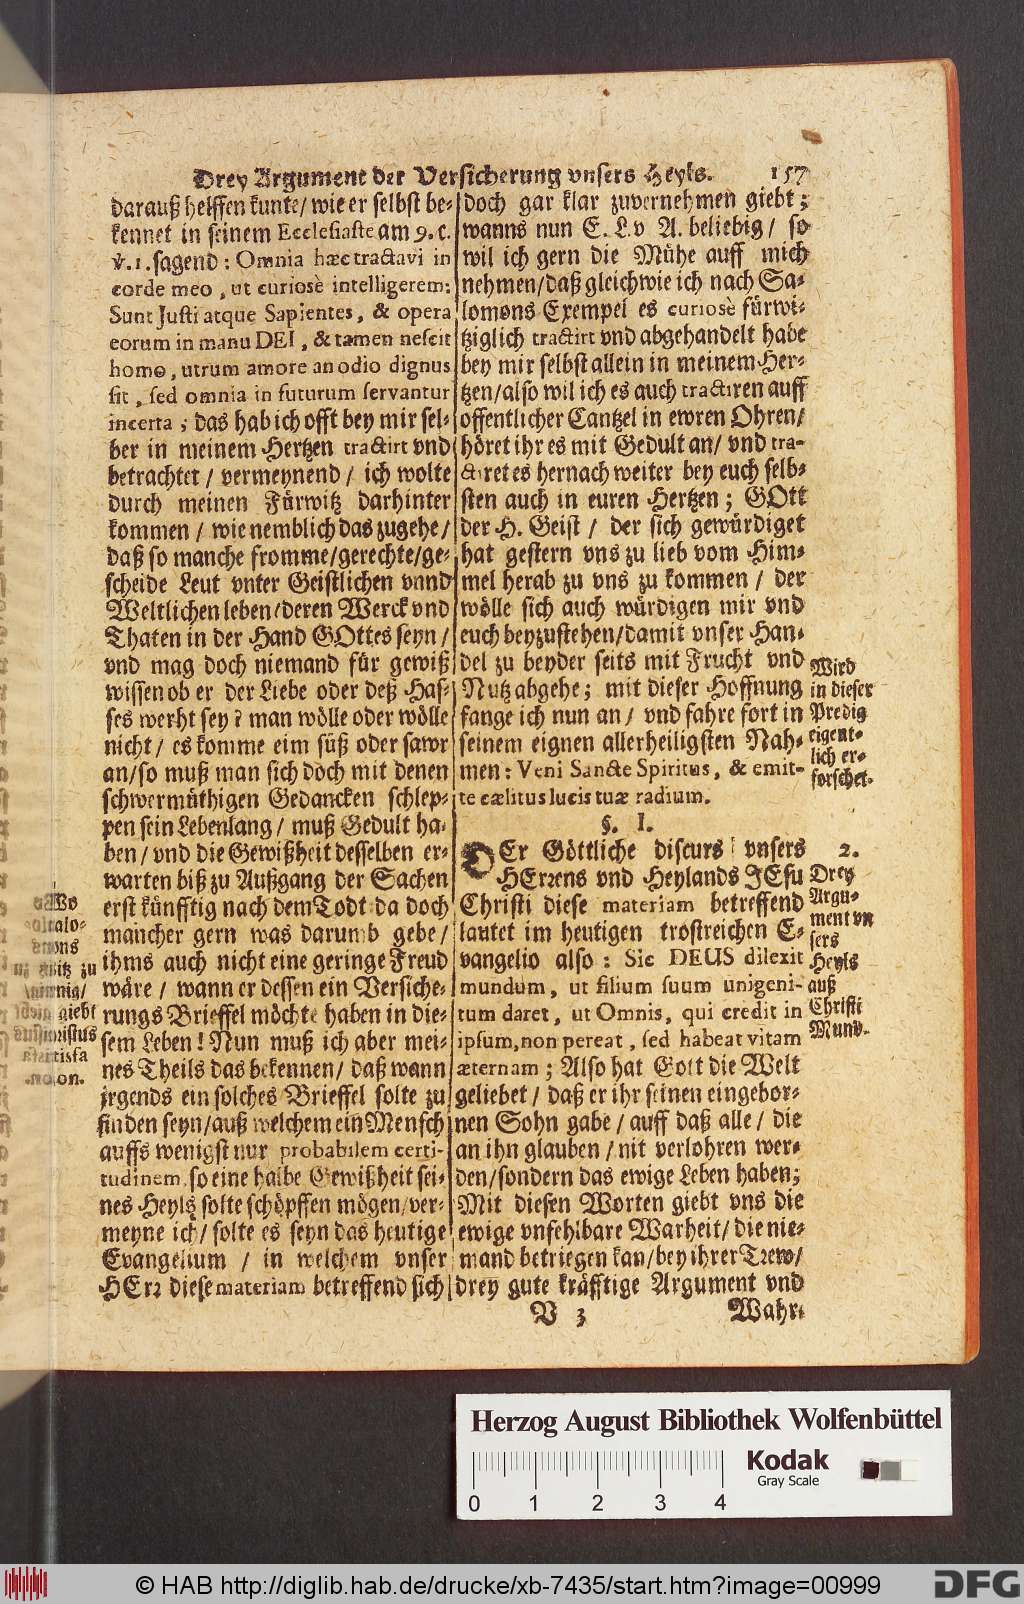 Drey Argument der Versicherung vnsers Heyls. 157
darauß helffen kunte/ wie er selbst be-
kennet in seinem Ecclesiaste am 9. c.
v. 1. sagend: Omnia hæc tractavi in
corde meo, ut curiosè intelligerem:
Sunt Justi atque Sapientes, & opera
eorum in manu DEI, & tamen nescit
homo, utrum amore an odio dignus
sit, sed omnia in futurum servantur
incerta; das hab ich offt bey mir sel-
ber in meinem Hertzen tractirt vnd
betrachtet/ vermeynend/ ich wolte
durch meinen Fürwitz darhinter
kommen/ wie nemblich das zugehe/
daß so manche fromme/gerechte/ge-
scheide Leut vnter Geistlichen vnnd
Weltlichen leben/deren Werck vnd
Thaten in der Hand GOttes seyn/
vnd mag doch niemand für gewiß
wissen ob er der Liebe oder deß Has-
ses werht sey? man wölle oder wölle
nicht/ es komme eim süß oder sawr
an/so muß man sich doch mit denen
schwermüthigen Gedancken schlep-
pen sein Lebenlang/ muß Gedult ha-
ben/ vnd die Gewißheit desselben er-
warten biß zu Außgang der Sachen
erst künfftig nach dem Todt da doch
mancher gern was darumb gebe/
ihms auch nicht eine geringe Freud
wäre/ wann er dessen ein Versiche-
rungs Brieffel möchte haben in die-
sem Leben! Nun muß ich aber mei-
nes Theils das bekennen/ daß wann
irgends ein solches Brieffel solte zu
finden seyn/auß welchem ein Mensch
auffs wenigst nur probabilem certi-
tudinem, so eine halbe Gewißheit sei-
nes Heyls solte schöpffen mögen/ver-
meyne ich/ solte es seyn das heutige
Evangelium / in welchem vnser
HErr diese materiam betreffend sich
Wo
zu
giebt
doch gar klar zuvernehmen giebt;
wanns nun E. L. v A. beliebig/ so
wil ich gern die Mühe auff mich
nehmen/daß gleichwie ich nach Sa-
lomons Exempel es curiosè fürwi-
tziglich tractirt vnd abgehandelt habe
bey mir selbst allein in meinem Her-
tzen/also wil ich es auch tractiren auff
offentlicher Cantzel in ewren Ohren/
höret ihr es mit Gedult an/ vnd tra-
ctiret es hernach weiter bey euch selb-
sten auch in euren Hertzen; GOtt
der H. Geist/ der sich gewürdiget
hat gestern vns zu lieb vom Him-
mel herab zu vns zu kommen/ der
wölle sich auch würdigen mir vnd
euch beyzustehen/damit vnser Han-
del zu beyder seits mit Frucht vnd
Nutz abgehe; mit dieser Hoffnung
fange ich nun an/ vnd fahre fort in
seinem eignen allerheiligsten Nah-
men: Veni Sancte Spiritus, & emit-
te cælitus lucis tuæ radium.
Wird
in dieser
Predig
eigent-
lich er-
forschet.
§. I.
DEr Göttliche discurs vnsers
HErrens vnd Heylands JEsu
Christi diese materiam betreffend
lautet im heutigen trostreichen E-
vangelio also: Sic DEUS dilexit
mundum, ut filium suum unigeni-
tum daret, ut Omnis, qui credit in
ipsum, non pereat, sed habeat vitam
æternam; Also hat Gott die Welt
geliebet/ daß er ihr seinen eingebor-
nen Sohn gabe/ auff daß alle/ die
an ihn glauben/ nit verlohren wer-
den/sondern das ewige Leben haben;
Mit diesen Worten giebt vns die
ewige vnfehlbare Warheit/ die nie-
mand betriegen kan/bey ihrer Trew/
drey gute kräfftige Argument vnd
2.
Drey
Argu-
ment vn
sers
Heyls
auß
Christi
Mund.
V 3 Wahr-
Herzog August Bibliothek Wolfenbüttel
Kodak
Gray Scale
0 1 2 3 4
© HAB http://diglib.hab.de/drucke/xb-7435/start.htm?image=00999
DFG